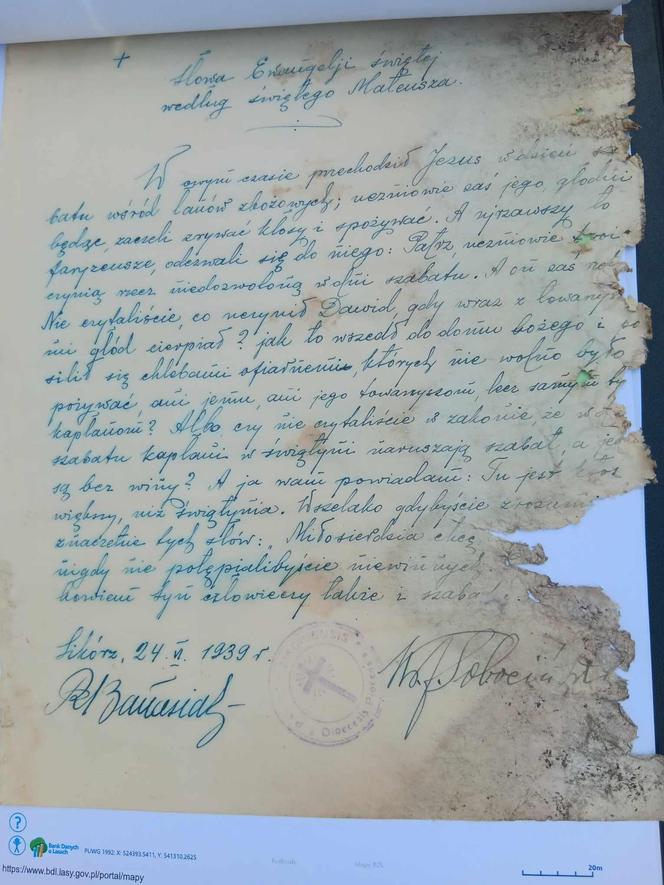 +
Słowa Ewangelji świętej
według świętego Mateusza.
W owym czasie przechodził Jezus w dzień sa-
batu wśród łanów zbożowych; uczniowie zaś jego, głodni
będąc, zaczęli zrywać kłosy i spożywać. A ujrzawszy to
faryzeusze, odezwali się do niego: Patrz, uczniowie twoi
czynią rzecz niedozwoloną w dni szabatu. A on zaś
Nie czytaliście, co uczynił Dawid, gdy wraz z towarzysz
mi głód cierpiał? jak to wszedł do domu bożego i po
silił się chlebami ofiarnemi, których nie wolno było
pożywać ani jemu, ani jego towarzyszom, lecz samym ty
kapłanom? Albo czy nie czytaliście w zakonie, że w d
szabatu kapłani w świątyni naruszają szabat, a je
są bez winy? A ja wam powiadam: Tu jest ktoś
większy, niż świątynia. Wszelako gdybyście zrozumi
znaczenie tych słów: Miłosierdzia chcę
nigdy nie potępialibyście niewinnych
bowiem Syn człowieczy także i szaba
Sikórz, 24.VI. 1939 r.
R Banasiak
Dioecesis
Bank Danych
o Lasach
PUWG 1992: X: 524393.5411, Y: 541310.2625
https://www.bdl.lasy.gov.pl/portal/mapy
Mapy BDL
20m